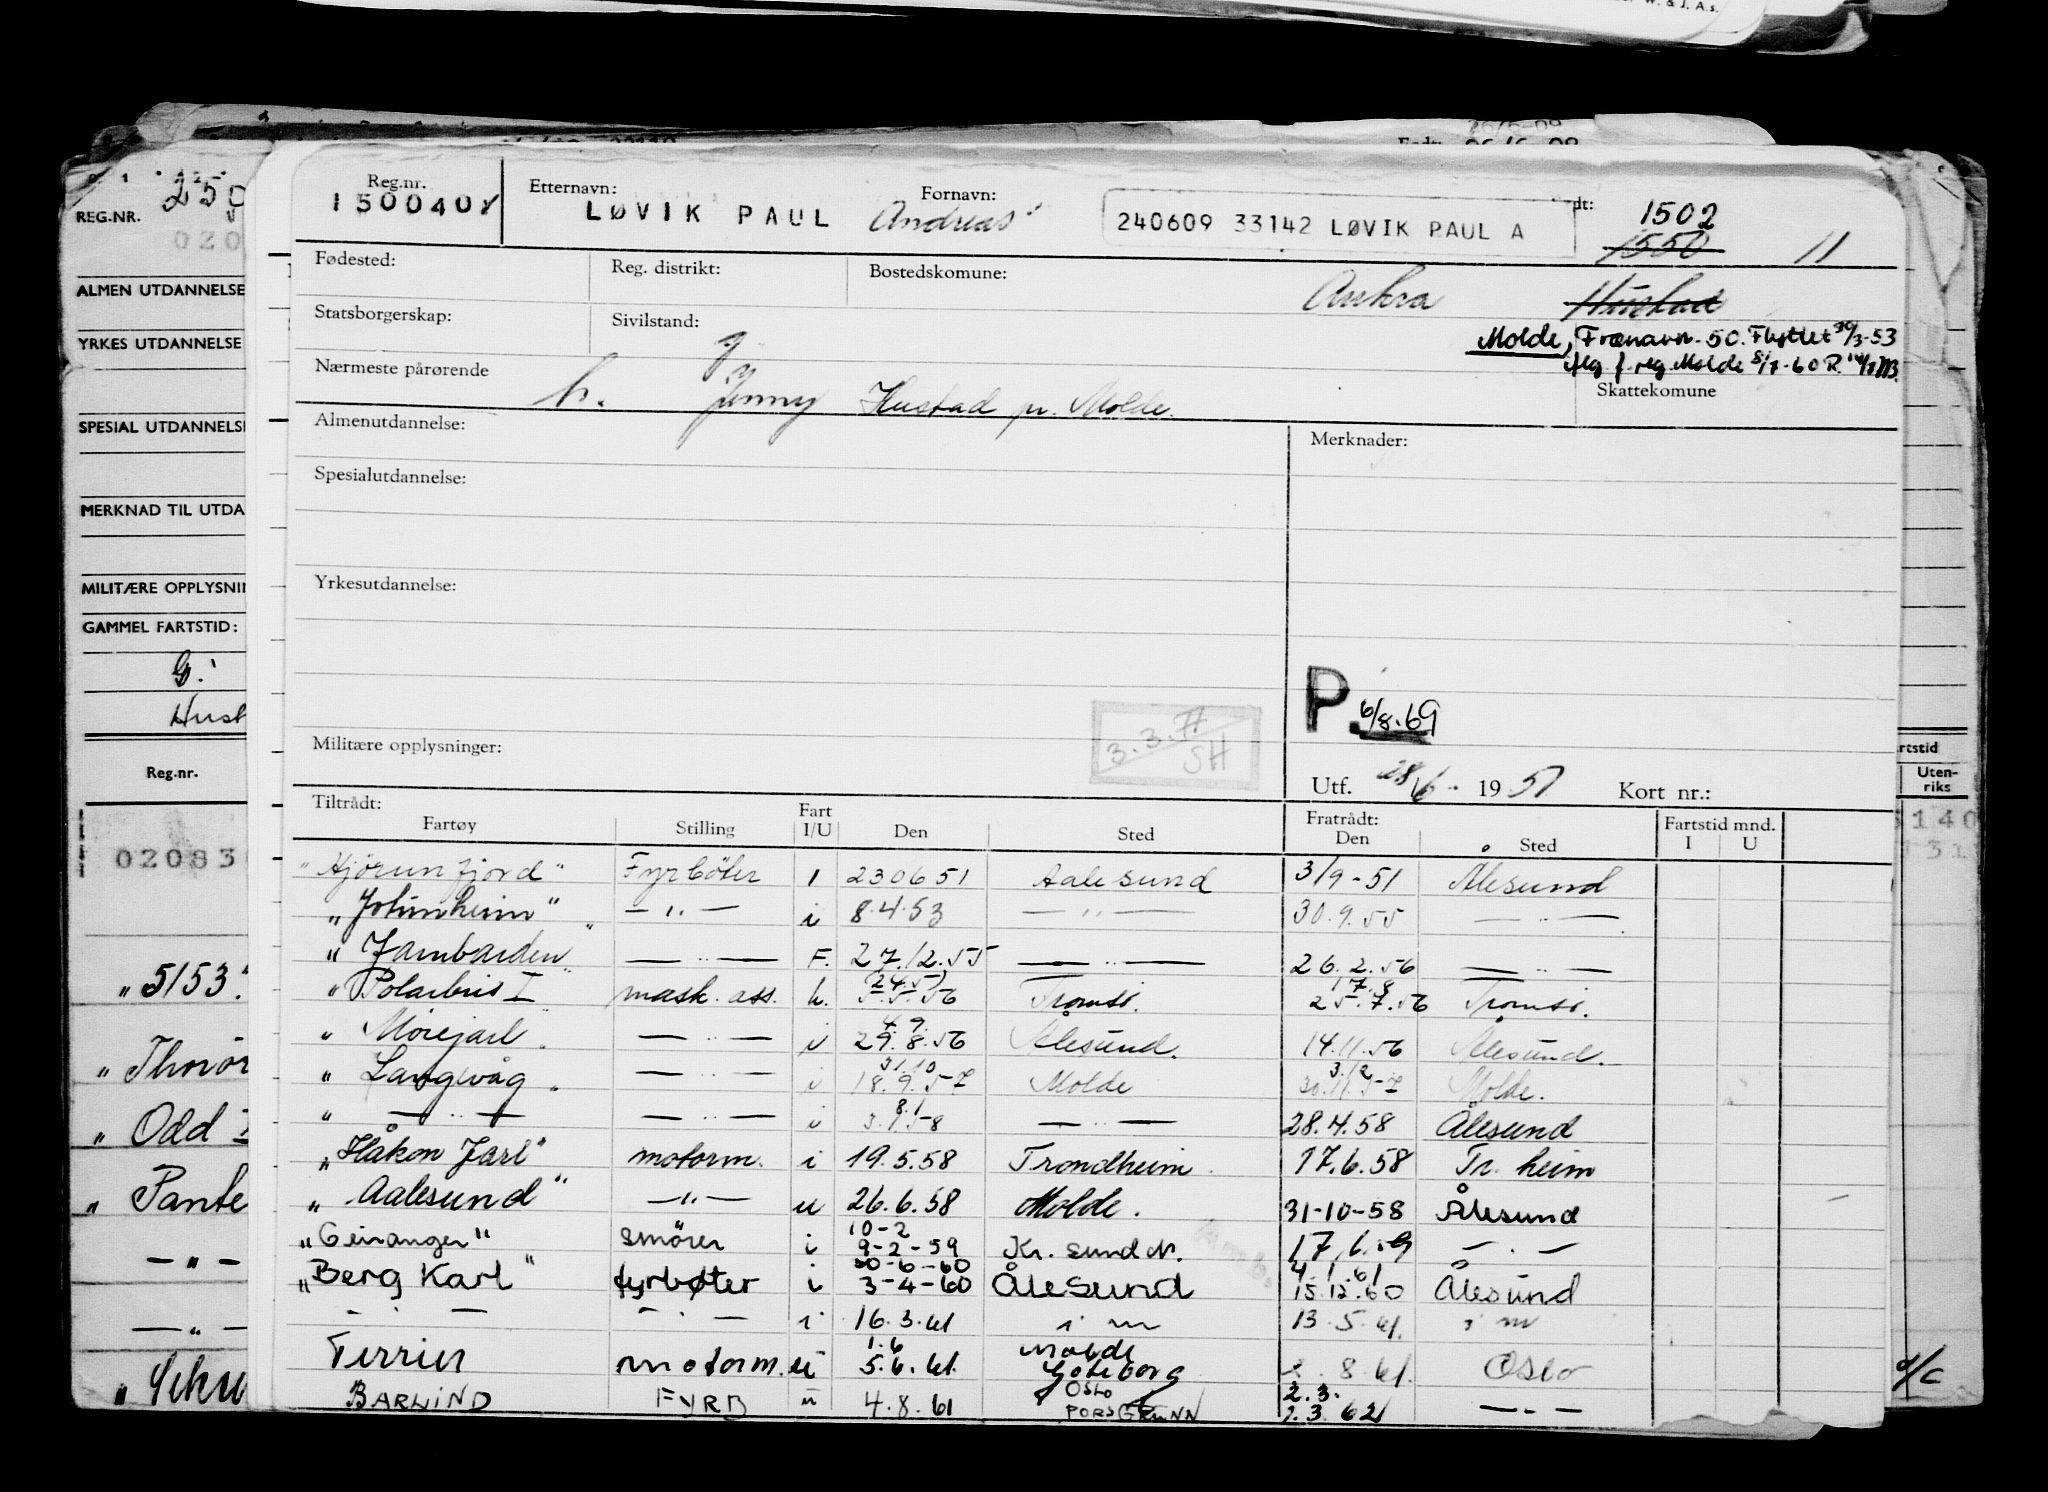 W. & J. A.s.
26/6-09
REG.NR. 250
020
ALMEN UTDANNELSE
YRKES UTDANNELSE
SPESIAL UTDANNELSE
MERKNAD TIL UTDA
MILITÆRE OPPLYSNIN
GAMMEL FARTSTID:
G.
Hust
Reg.nr.
02083
"5153"
"Odd I
"Pante
— " —
— " —
rtstid
Uten-
riks
140
Reg.nr. Etternavn: Fornavn: dt:
150040 LØVIK PAUL Andreas 240609 33142 LØVIK PAUL A 1502
1550 11
Fødested: Reg. distrikt: Bostedskomune: Aukra Hustad
Statsborgerskap: Sivilstand: g Molde, Frænavn. 50. Flyttet 30/3-53
flg. f. reg. Molde 8/7-60 R.
Nærmeste pårørende h. Jenny Hustad pr. Molde. Skattekomune
Almenutdannelse: Merknader:
Spesialutdannelse:
Yrkesutdannelse:
P. 6/8.69
3.3.71
SH
Militære opplysninger: Utf. 28/6- 1951 Kort nr.:
Tiltrådt: Fart Fratrådt: Fartstid mnd.
Fartøy Stilling I/U Den Sted Den Sted I U
"Hjørunfjord" Fyrbøter I 230651 Aalesund 3/9-51 Ålesund
"Jotunheim" — " — i 8.4.53 — " — 30.9.55 — " —
"Jarnbarden" — " — F. 27.12.55 — " — 26.2.56 — " —
24.5) 17.8
"Polarbris I" mask. ass. h. 5.5.56 Tromsø. 25.7.56 Tromsø.
4.9.
"Mørejarl" — " — i 29.8.56 Ålesund. 14.11.56 Ålesund.
31.10 3.12
"Langvåg" — " — i 18.9.57 Molde 30.11.57 Molde.
8.1
" — " — — " — i 3.1.58 — " — 28.4.58 Ålesund
"Håkon Jarl" motorm. i 19.5.58 Trondheim 17.6.58 Tr. heim
"Aalesund" — " — u 26.6.58 Molde. 31-10-58 Ålesund
10-2
"Geiranger" smører i 9-2-59 Kr. sund N. 17.6.59 — " —
30-6-60 4.1.61
"Berg Karl" fyrbøter i 3-4-60 Ålesund 15.12.60 Ålesund
— " — — " — i 16.3.61 i m 13.5.61. i m
1.6 Molde
Terrier motorm. u 5.6.61. Gøteborg 2.8.61. Oslo
Oslo 2.3.
BARWIND FYRB u 4.8.61 PORSGRUNN 1.3.62 — " —